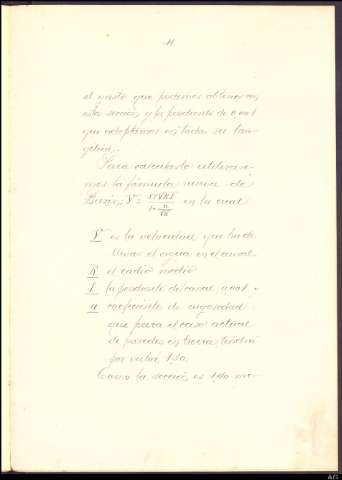 11
el gasto que podemos obtener con
esta sección y la pendiente de 0,001
que adoptamos en toda su lon-
gitud.
Para calcularlo utilizare-
mos la fórmula nueva de
Bazin: V = 87√RI / 1 + n/√R en la cual
V es la velocidad que ha de
llevar el agua en el canal.
R el radio medio
I la pendiente del canal, y
n coeficiente de rugosidad
que para el caso actual
de paredes en tierra tendrá
por valor 1.30.
Como la sección es